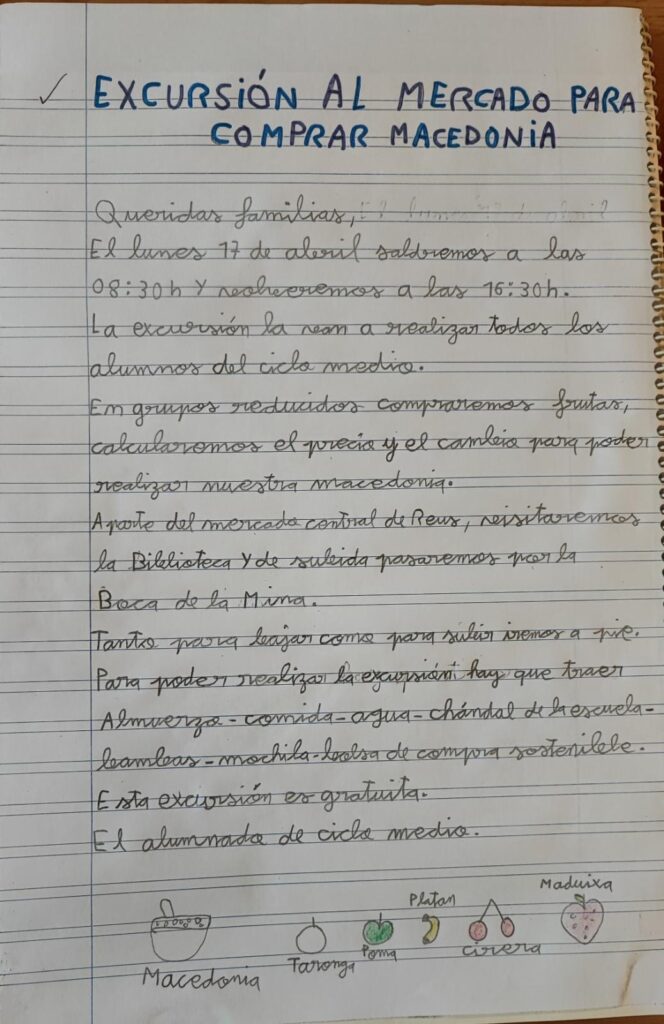 EXCURSIÓN AL MERCADO PARA
COMPRAR MACEDONIA
Queridas familias,
El lunes 17 de abril saldremos a las
08:30h Y volveremos a las 16:30h.
La excursión la van a realizar todos los
alumnos del ciclo medio.
En grupos reducidos compraremos frutas,
calcularemos el precio y el cambio para poder
realizar nuestra macedonia.
Aparte del mercado central de Reus, visitaremos
la Biblioteca Y de subida pasaremos por la
Boca de la Mina.
Tanto para bajar como para subir iremos a pie.
Para poder realizar la excursión hay que traer
Almuerzo-comida-agua-chándal de la escuela-
bambas-mochila-bolsa de compra sostenible.
Esta excursión es gratuita.
El alumnado de ciclo medio.
Macedonia
Taronga
Poma
Platan
cirera
Maduixa